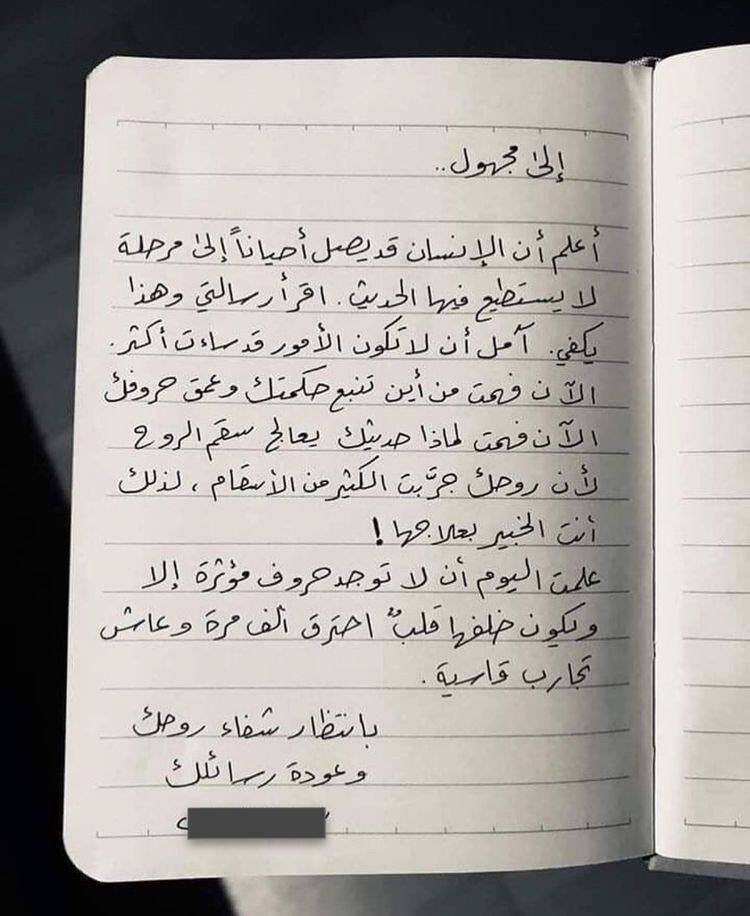 إلى مجهول..
أعلم أن الإنسان قد يصل أحياناً إلى مرحلة
لا يستطيع فيها الحديث. اقرأ رسالتي وهذا
يكفي. آمل أن لا تكون الأمور قد ساءت أكثر.
الآن فهمت من أين تنبع حكمتك وعمق حروفك
الآن فهمت لماذا حديثك يعالج سقم الروح
لأن روحك جرَّبت الكثير من الأسقام ، لذلك
أنت الخبير بعلاجها !
علمت اليوم أن لا توجد حروف مؤثرة إلا
ويكون خلفها قلبٌ احترق ألف مرة وعاش
تجارب قاسية .
بانتظار شفاء روحك
وعودة رسائلك